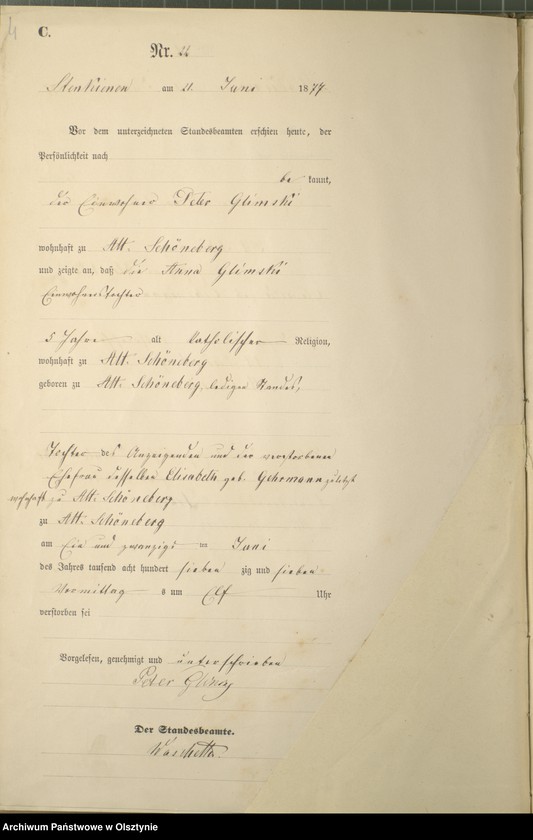 C.
Nr. 22
Stenkienen am 21. Juni 1877
Vor dem unterzeichneten Standesbeamten erschien heute, der
Persönlichkeit nach
be kannt,
der Einwohner Peter Glimski
wohnhaft zu Alt. Schöneberg
und zeigte an, daß die Anna Glimski
Einwohnerstochter
5 Jahre alt katholischer Religion,
wohnhaft zu Alt. Schöneberg
geboren zu Alt. Schöneberg, ledigen Standes,
Tochter des Anzeigenden und der verstorbenen
Ehefrau desselben Elisabeth geb. Gehrmann zuletzt
wohnhaft zu Alt. Schöneberg
zu Alt. Schöneberg
am Ein und zwanzigsten Juni
des Jahres tausend acht hundert sieben zig und sieben
Vormittag s um Elf Uhr
verstorben sei
Vorgelesen, genehmigt und unterschrieben
Peter
Der Standesbeamte.
Archiwum Państwowe w Olsztynie